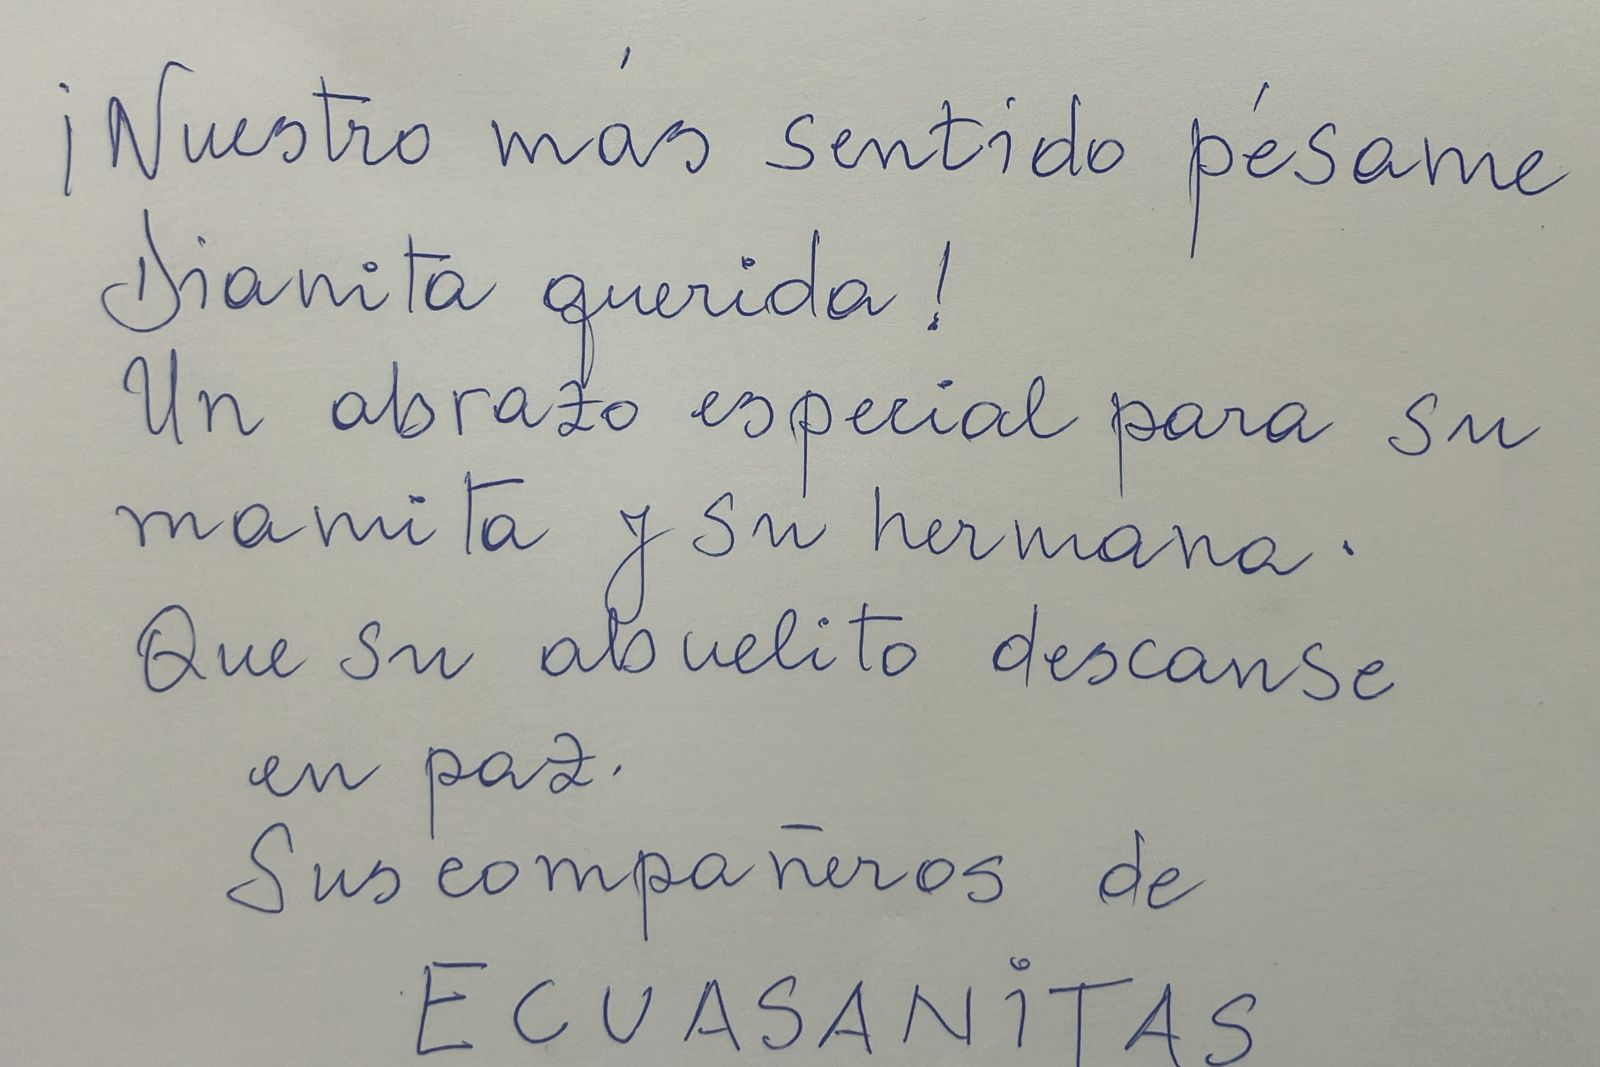 ¡Nuestro más sentido pésame
Dianita querida!
Un abrazo especial para su
mamita y su hermana.
Que su abuelito descanse
en paz.
Sus compañeros de
ECUASANiTAS